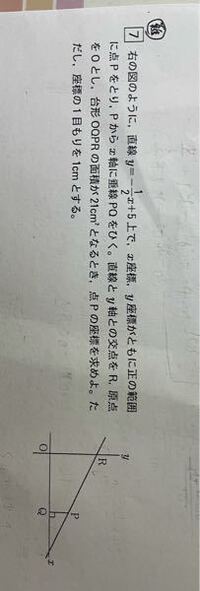 7 右の図のように，直線 y=-1/2x+5上で，x座標，y座標がともに正の範囲
に点Pをとり，Pからx軸に垂線PQをひく。直線とy軸との交点をR，原点
をOとし，台形OQPRの面積が21cm²となるとき，点Pの座標を求めよ。た
だし，座標の1目もりを1cmとする。
y
R
P
O
Q
x